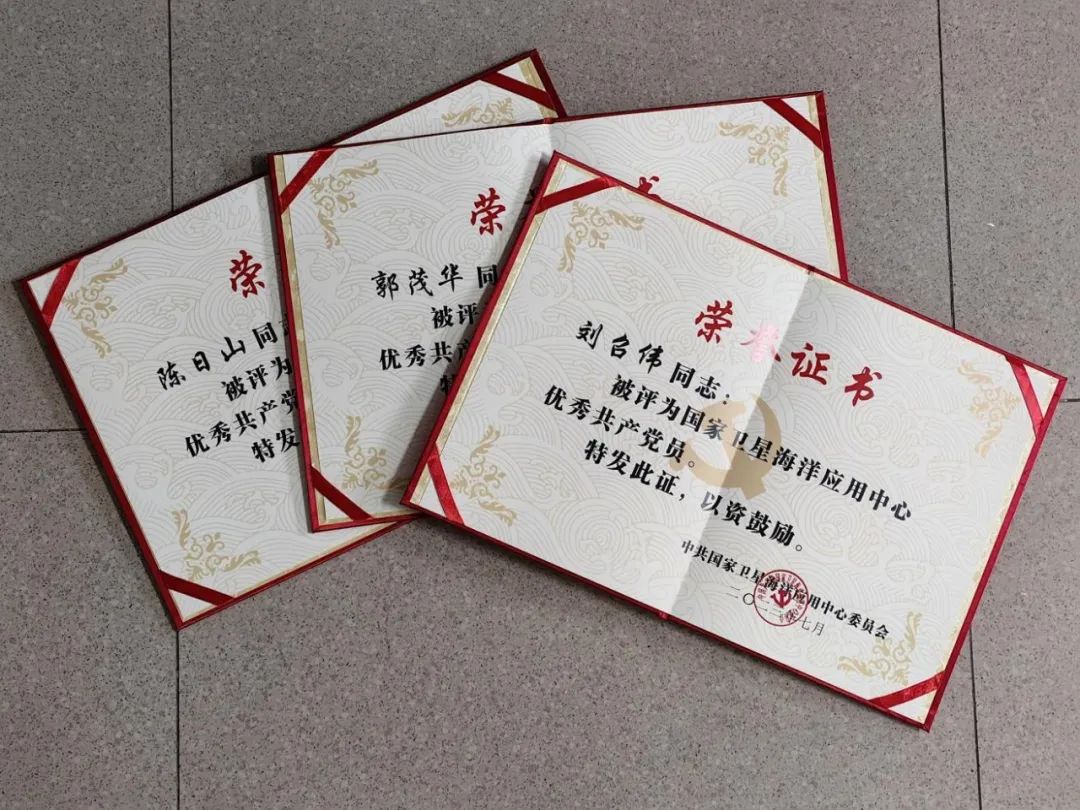 荣
陈日山同志
被评为
优秀共产党
特发
荣
书
郭茂华同
被评
优秀共产
特
荣誉证书
刘召伟同志：
被评为国家卫星海洋应用中心
优秀共产党员。
特发此证，以资鼓励。
中共国家卫星海洋应用中心委员会
七月